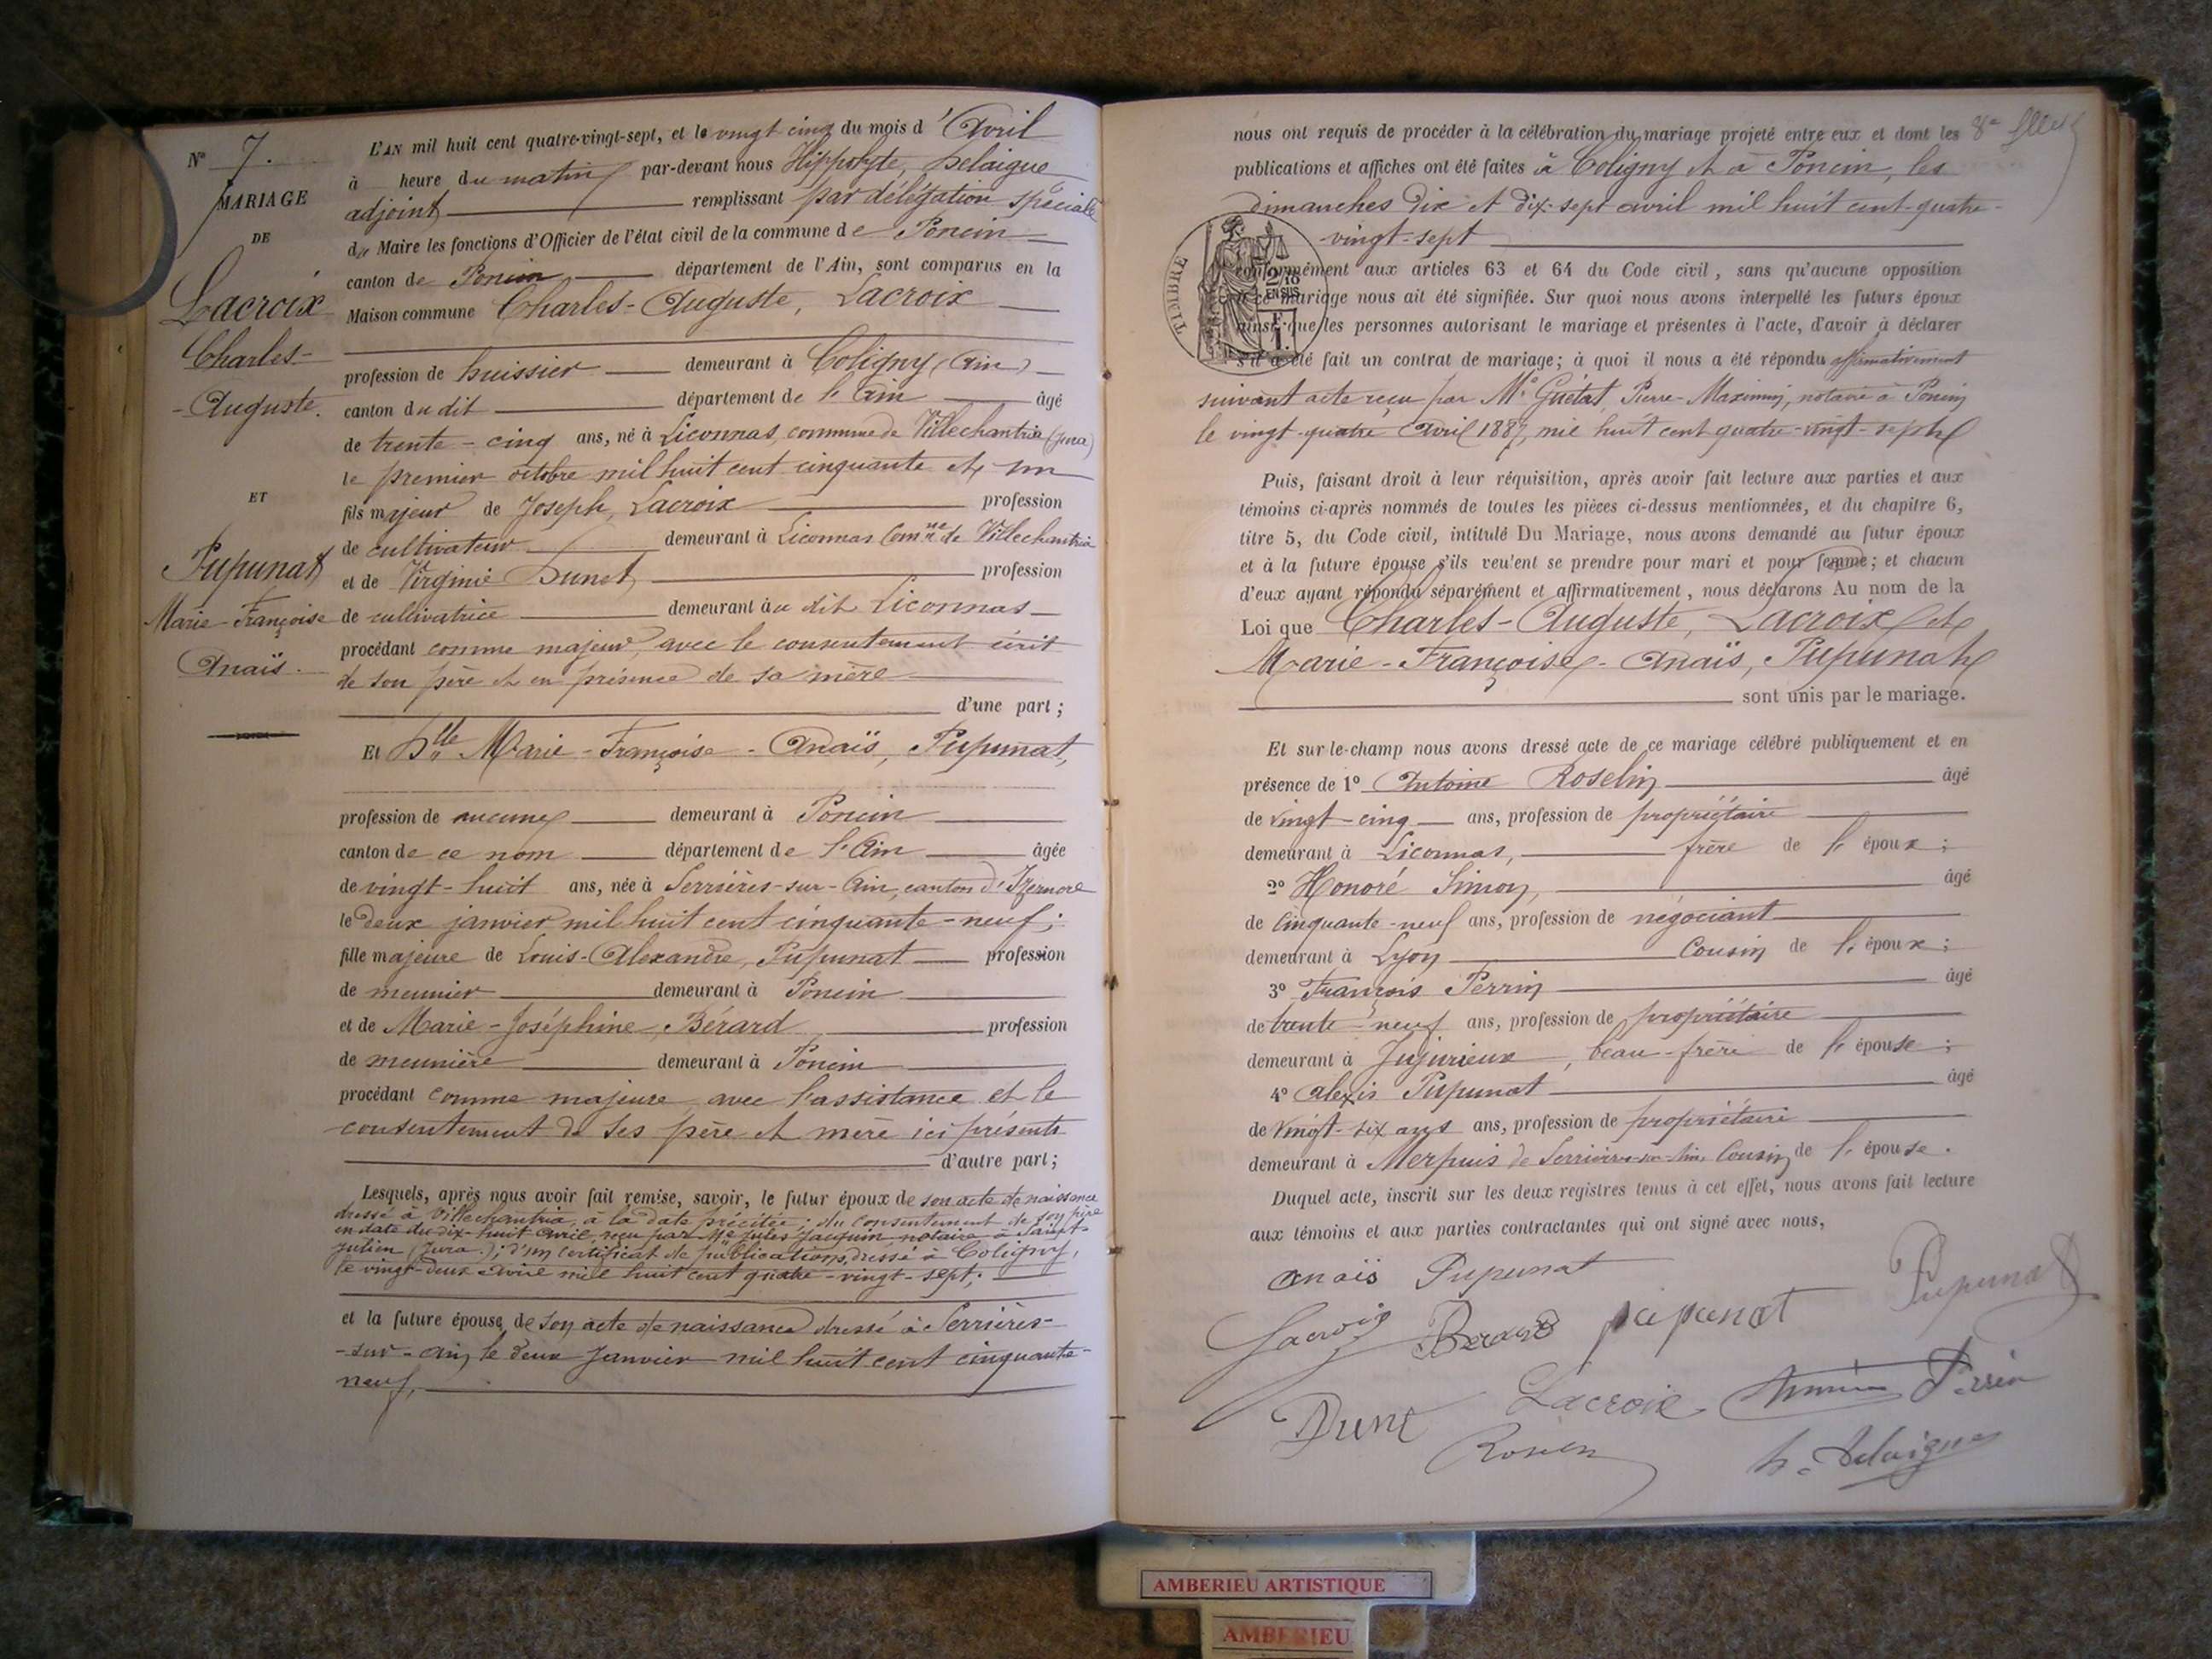 N° 7.
MARIAGE
DE
Lacroix
Charles-
-Auguste.
ET
Pupunat
Marie-Françoise
Anaïs.
L'AN mil huit cent quatre-vingt-sept, et le vingt cinq du mois d'Avril
à heure du matin par-devant nous Hippolyte, Delaigue
adjoint remplissant par délégation spéciale
du Maire les fonctions d'Officier de l'état civil de la commune de Poncin
canton de Poncin département de l'Ain, sont comparus en la
Maison commune Charles-Auguste, Lacroix
profession de huissier demeurant à Coligny (Ain)
canton du dit département de l'Ain âgé
de trente-cinq ans, né à Liconnas, commune de Villechantria (Jura)
le premier octobre mil huit cent cinquante et un
fils majeur de Joseph, Lacroix profession
de cultivateur demeurant à Liconnas Comne de Villechantria
et de Virginie Dunet profession
de cultivatrice demeurant au dit Liconnas
procédant comme majeur, avec le consentement écrit
de son père et en présence de sa mère
d'une part ;
Et Dlle Marie-Françoise-Anaïs, Pupunat,
profession de aucune demeurant à Poncin
canton de ce nom département de l'Ain âgée
de vingt-huit ans, née à Serrières-sur-Ain, canton d'Izernore
le deux janvier mil huit cent cinquante-neuf ;
fille majeure de Louis-Alexandre, Pupunat profession
de meunier demeurant à Poncin
et de Marie-Joséphine, Bérard profession
de meunière demeurant à Poncin
procédant comme majeure, avec l'assistance et le
consentement de ses père et mère ici présents
d'autre part ;
Lesquels, après nous avoir fait remise, savoir, le futur époux de son acte de naissance
dressé à Villechantria, à la date précitée ; du consentement de son père
en date du dix-huit avril, reçu par Me Jules Jacquin notaire à Saint-
Julien (Jura) ; d'un certificat de publications dressé à Coligny,
le vingt-deux avril mil huit cent quatre-vingt-sept ;
et la future épouse, de son acte de naissance dressé à Serrières-
-sur-Ain, le deux Janvier mil huit cent cinquante-
neuf,
nous ont requis de procéder à la célébration du mariage projeté entre eux et dont les
publications et affiches ont été faites à Coligny et à Poncin, les
dimanches dix et dix-sept avril mil huit cent-quatre-
vingt-sept
TIMBRE
2/10
EN SUS
1 F.
conformément aux articles 63 et 64 du Code civil, sans qu'aucune opposition
à ce mariage nous ait été signifiée. Sur quoi nous avons interpellé les futurs époux
ainsi que les personnes autorisant le mariage et présentes à l'acte, d'avoir à déclarer
s'il a été fait un contrat de mariage ; à quoi il nous a été répondu affirmativement
suivant acte reçu par Me Guétat, Pierre-Maximin, notaire à Poncin
le vingt-quatre Avril 1887, mil huit cent quatre-vingt-sept
Puis, faisant droit à leur réquisition, après avoir fait lecture aux parties et aux
témoins ci-après nommés de toutes les pièces ci-dessus mentionnées, et du chapitre 6,
titre 5, du Code civil, intitulé Du Mariage, nous avons demandé au futur époux
et à la future épouse s'ils veulent se prendre pour mari et pour femme ; et chacun
d'eux ayant répondu séparément et affirmativement, nous déclarons Au nom de la
Loi que Charles-Auguste, Lacroix et
Marie-Françoise-Anaïs, Pupunat
sont unis par le mariage.
Et sur-le-champ nous avons dressé acte de ce mariage célébré publiquement et en
présence de 1° Antoine Roselin âgé
de vingt-cinq ans, profession de propriétaire
demeurant à Liconnas, frère de l'époux ;
2° Honoré Simon, âgé
de Cinquante-neuf ans, profession de négociant
demeurant à Lyon Cousin de l'époux ;
3° François Perrin âgé
de trente-neuf ans, profession de propriétaire
demeurant à Jujurieux, beau-frère de l'épouse ;
4° Alexis Pupunat âgé
de Vingt-six ans ans, profession de propriétaire
demeurant à Merpuis de Serrières-sur-Ain, Cousin de l'épouse.
Duquel acte, inscrit sur les deux registres tenus à cet effet, nous avons fait lecture
aux témoins et aux parties contractantes qui ont signé avec nous,
Anaïs Pupunat
Lacroix Berard pupunat Pupunat
Dunet Lacroix Perrin
h. Delaigue
AMBERIEU ARTISTIQUE
AMBERIEU